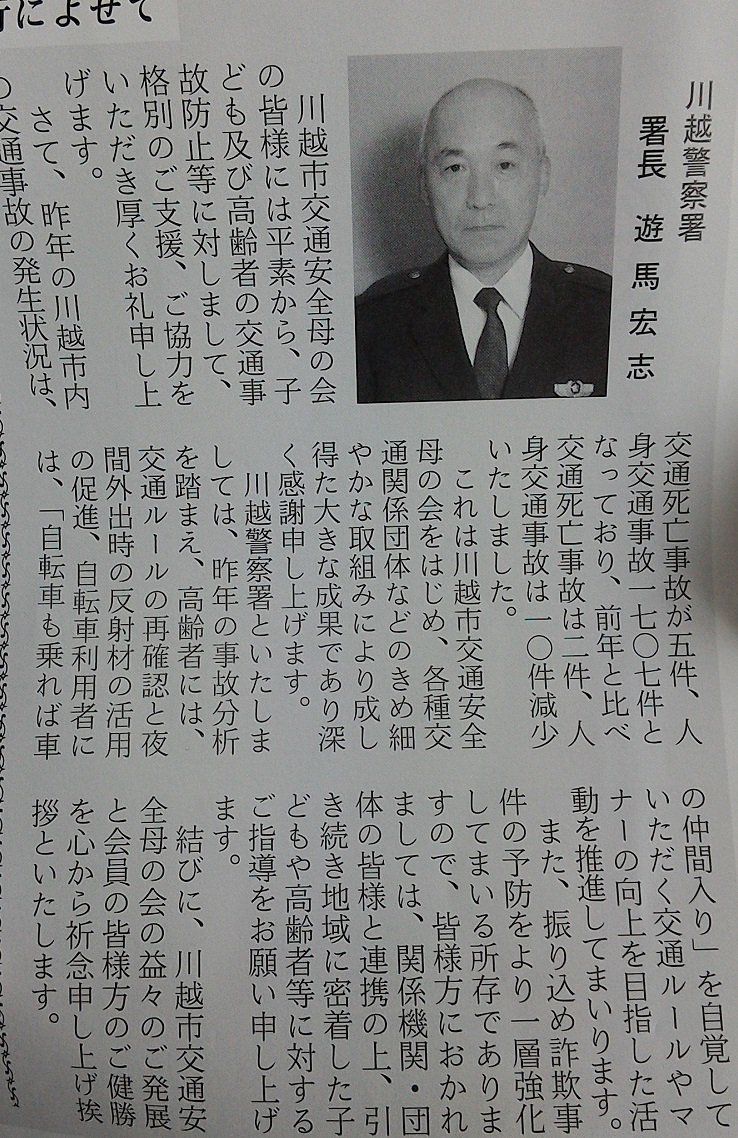 行によせて
川越警察署
署長　遊馬宏志
川越市交通安全母の会
の皆様には平素から、子
ども及び高齢者の交通事
故防止等に対しまして、
格別のご支援、ご協力を
いただき厚くお礼申し上
げます。
さて、昨年の川越市内
の交通事故の発生状況は、
交通死亡事故が五件、人
身交通事故一七〇七件と
なっており、前年と比べ
交通死亡事故は二件、人
身交通事故は一〇件減少
いたしました。
これは川越市交通安全
母の会をはじめ、各種交
通関係団体などのきめ細
やかな取組みにより成し
得た大きな成果であり深
く感謝申し上げます。
川越警察署といたしま
しては、昨年の事故分析
を踏まえ、高齢者には、
交通ルールの再確認と夜
間外出時の反射材の活用
の促進、自転車利用者に
は、「自転車も乗れば車
の仲間入り」を自覚して
いただく交通ルールやマ
ナーの向上を目指した活
動を推進してまいります。
また、振り込め詐欺事
件の予防をより一層強化
してまいる所存でありま
すので、皆様方におかれ
ましては、関係機関・団
体の皆様と連携の上、引
き続き地域に密着した子
どもや高齢者等に対する
ご指導をお願い申し上げ
ます。
結びに、川越市交通安
全母の会の益々のご発展
と会員の皆様方のご健勝
を心から祈念申し上げ挨
拶といたします。